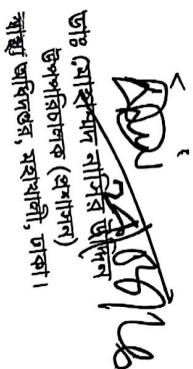 ডাঃ মোহাম্মদ নাসির উদ্দিন
উপপরিচালক (প্রশাসন)
স্বাস্থ্য অধিদপ্তর, মহাখালী, ঢাকা।